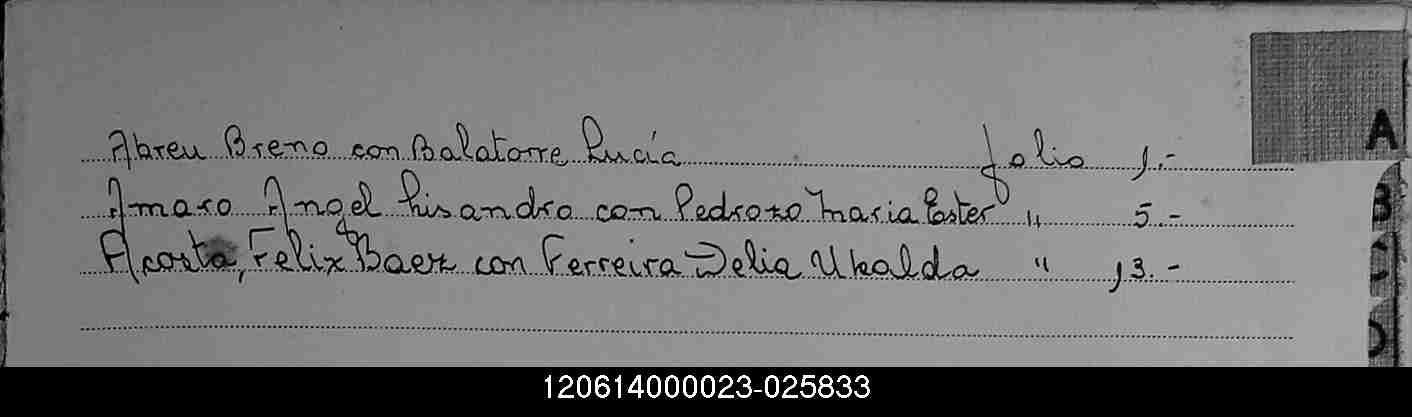 Abreu Breno con Balatorre Lucía folio 1.-
Amaro Angel Lisandro con Pedrozo Maria Ester " 5.-
Acosta, Felix Baez con Ferreira Delia Ubalda " 13.-
A
B
C
D
120614000023-025833